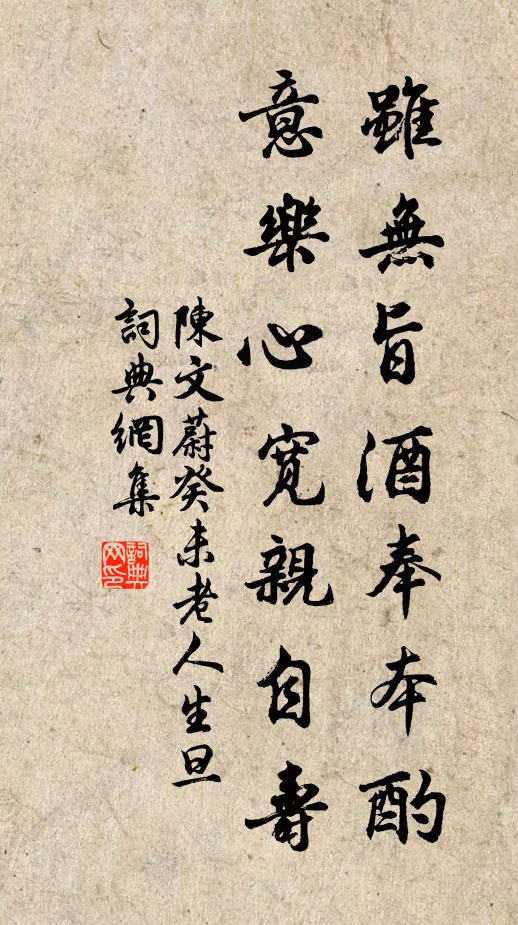 雖無旨酒奉本酌
意樂心寬親自壽
陳文蔚癸未老人生旦
詞典網集
詞典网印